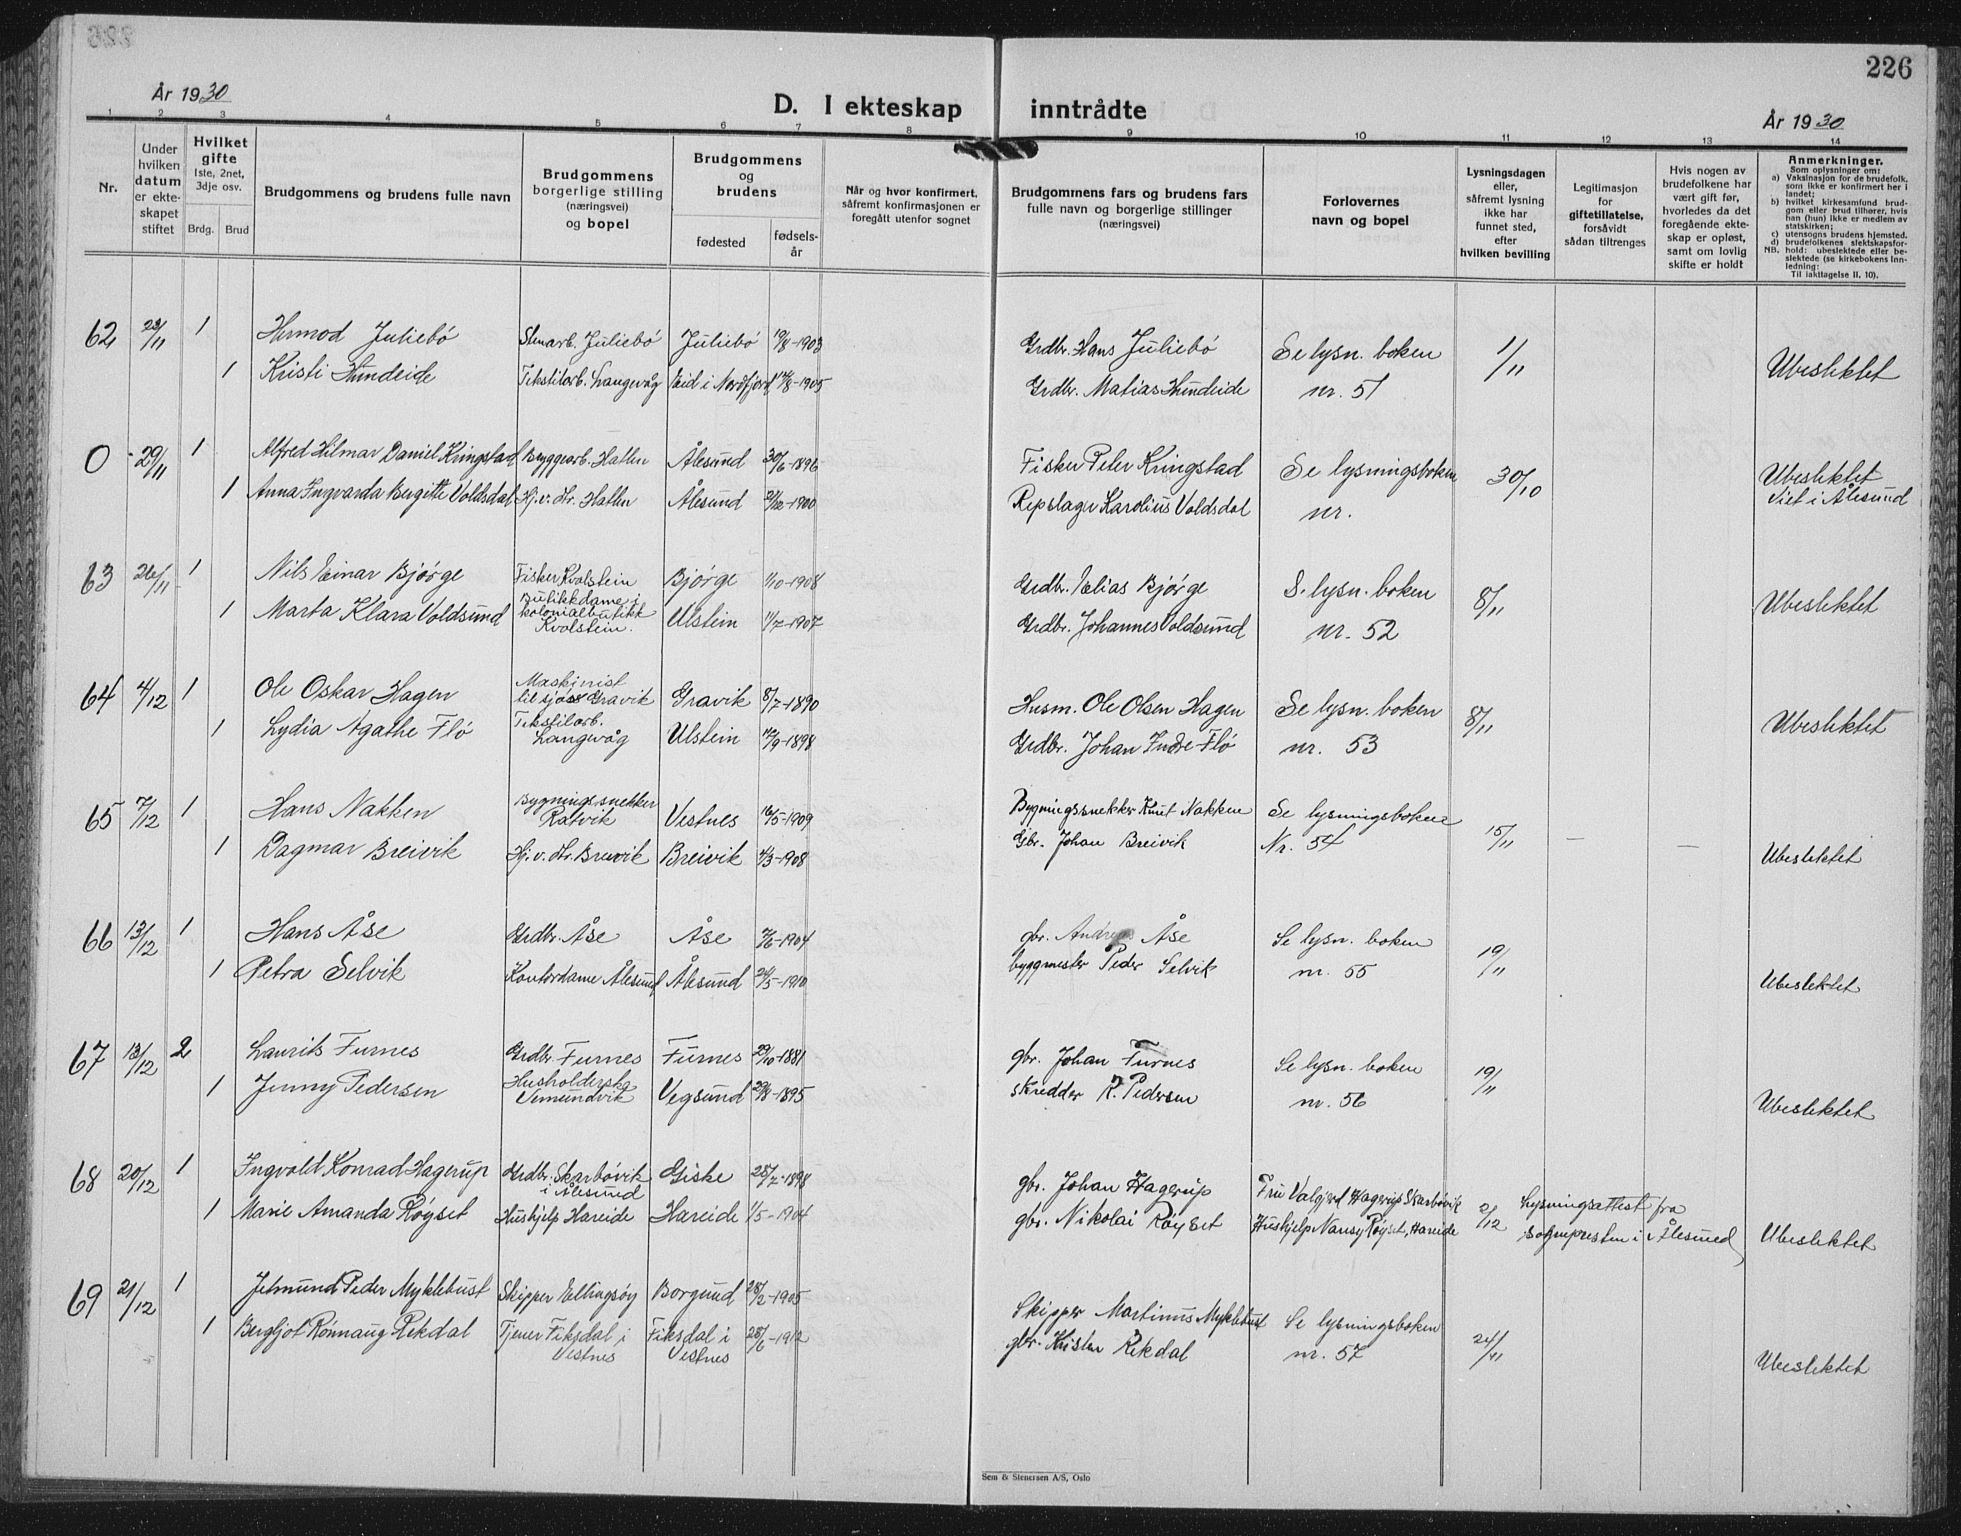 226
År 1930
D. I ekteskap inntrådte
År 1930
1 2 3 4 5 6 7 8 9 10 11 12 13 14
Nr.
Under hvilken datum er ekteskapet stiftet
Hvilket gifte
1ste, 2net, 3dje osv.
Brdg. Brud
Brudgommens og brudens fulle navn
Brudgommens borgerlige stilling (næringsvei) og bopel
Brudgommens og brudens
fødested
fødselsår
Når og hvor konfirmert, såfremt konfirmasjonen er foregått utenfor sognet
Brudgommens fars og brudens fars fulle navn og borgerlige stillinger (næringsvei)
Forlovernes navn og bopel
Lysningsdagen eller, såfremt lysning ikke har funnet sted, efter hvilken bevilling
Legitimasjon for giftetillatelse, forsåvidt sådan tiltrenges
Hvis nogen av brudefolkene har vært gift før, hvorledes da det foregående ekteskap er opløst, samt om lovlig skifte er holdt
Anmerkninger.
Som oplysninger om:
a) Vaksinasjon for de brudefolk, som ikke er konfirmert her i landet;
b) hvilket kirkesamfund brudgom eller brud tilhører, hvis han (hun) ikke er medlem av statskirken;
c) utensogns brudens hjemsted.
d) brudefolkenes slektskapsforhold: ubeslektede eller beslektede (se kirkebokens Innledning:
NB. Til iakttagelse II, 10).
62 1 Hermod Juliebö Stenarb. Juliebö Juliebö 1903 Grdbr. Hans Juliebö Se lysn. boken 1/11
1 Kristi Hundeide Tekstilarb. Langevåg Eid i Nordfjord 1905 Grdbr. Matias Hundeide nr. 51 Ubeslektet
0 29/11 1 Alfred Hilmar Daniel Kringstad Byggearb. Hatlen Ålesund 30/6-1896 Fisker Peter Kringstad Se lysningsboken 30/10 Ubeslektet
1 Anna Ingvarda Bergitte Voldsdal Hj. v. Hr. Hatlen Ålesund 1900 Repslager Karolius Voldsdal nr. Viet i Ålesund
63 26/11 1 Nils Einar Bjørge Fisker Kvalstein Bjørge 1/10-1908 Grdbr. Elias Bjørge S. lysn. boken 8/11
1 Marta Klara Voldsund Butikkdame i kolonialbutikk Kvalstein. Ulstein 1/7-1907 Grdbr. Johannes Voldsund nr. 52 Ubeslektet
64 4/12 1 Ole Oskar Hagen Maskinist til sjøss Gravik Gravik 8/7-1890 Husm. Ole Olsen Hagen Se lysn. boken 8/11
1 Lydia Agathe Flö Tekstilarb. Langevåg Ulstein 1898 Grdbr. Johan Indre-Flö nr. 53 Ubeslektet
65 7/12 1 Hans Nakken Bygningssnekker Ratvik Vestnes 16/5-1909 Bygningssnekker Knut Nakken Se lysningsboken 15/11
1 Dagmar Breivik Hj. v. Hr. Breivik Breivik 4/3-1908 Gbr. Johan Breivik Nr. 54 — — Ubeslektet
66 13/12 1 Hans Åse Grdbr. Åse Åse 1904 gbr. Andreas Åse Se lysn. boken 19/11
1 Petra Selvik Kontordame Ålesund Ålesund 1910 byggmester Peder Selvik nr. 55 Ubeslektet
67 13/12 2 Laurits Furnes Grdbr. Furnes Furnes 29/10-1881 gbr. Johan Furnes Se lysn. boken 19/11
1 Jenny Pedersen Husholderske Vemundvik Vegsund 29/8-1895 skredder R. Pedersen nr. 56 Ubeslektet
68 20/12 1 Ingvald Konrad Hagerup Grdbr. Skarbövik i Ålesund Giske 28/7-1898 gbr. Johan Hagerup Fru Valgjerd Hagerup Skarbövik 2/12 Lysningsattest fra
1 Marie Amanda Röyset Hushjelp Hareide Hareide 1/5-1904 gbr. Nikolai Röyset Hushjelp Nansy Röyset, Hareide Sognepresten i Ålesund Ubeslektet
69 21/12 1 Jetmund Peder Myklebust Skipper Ellingsöy Borgund 28/2-1905 Skipper Martinus Myklebust Se lysningsboken 24/11
1 Bergljot Rönnaug Rekdal Tjener Fiksdal i Vestnes Fiksdal i Vestnes 28/6-1912 gbr. Kristen Rekdal nr. 57 Ubeslektet
Sem & Stenersen A/S, Oslo